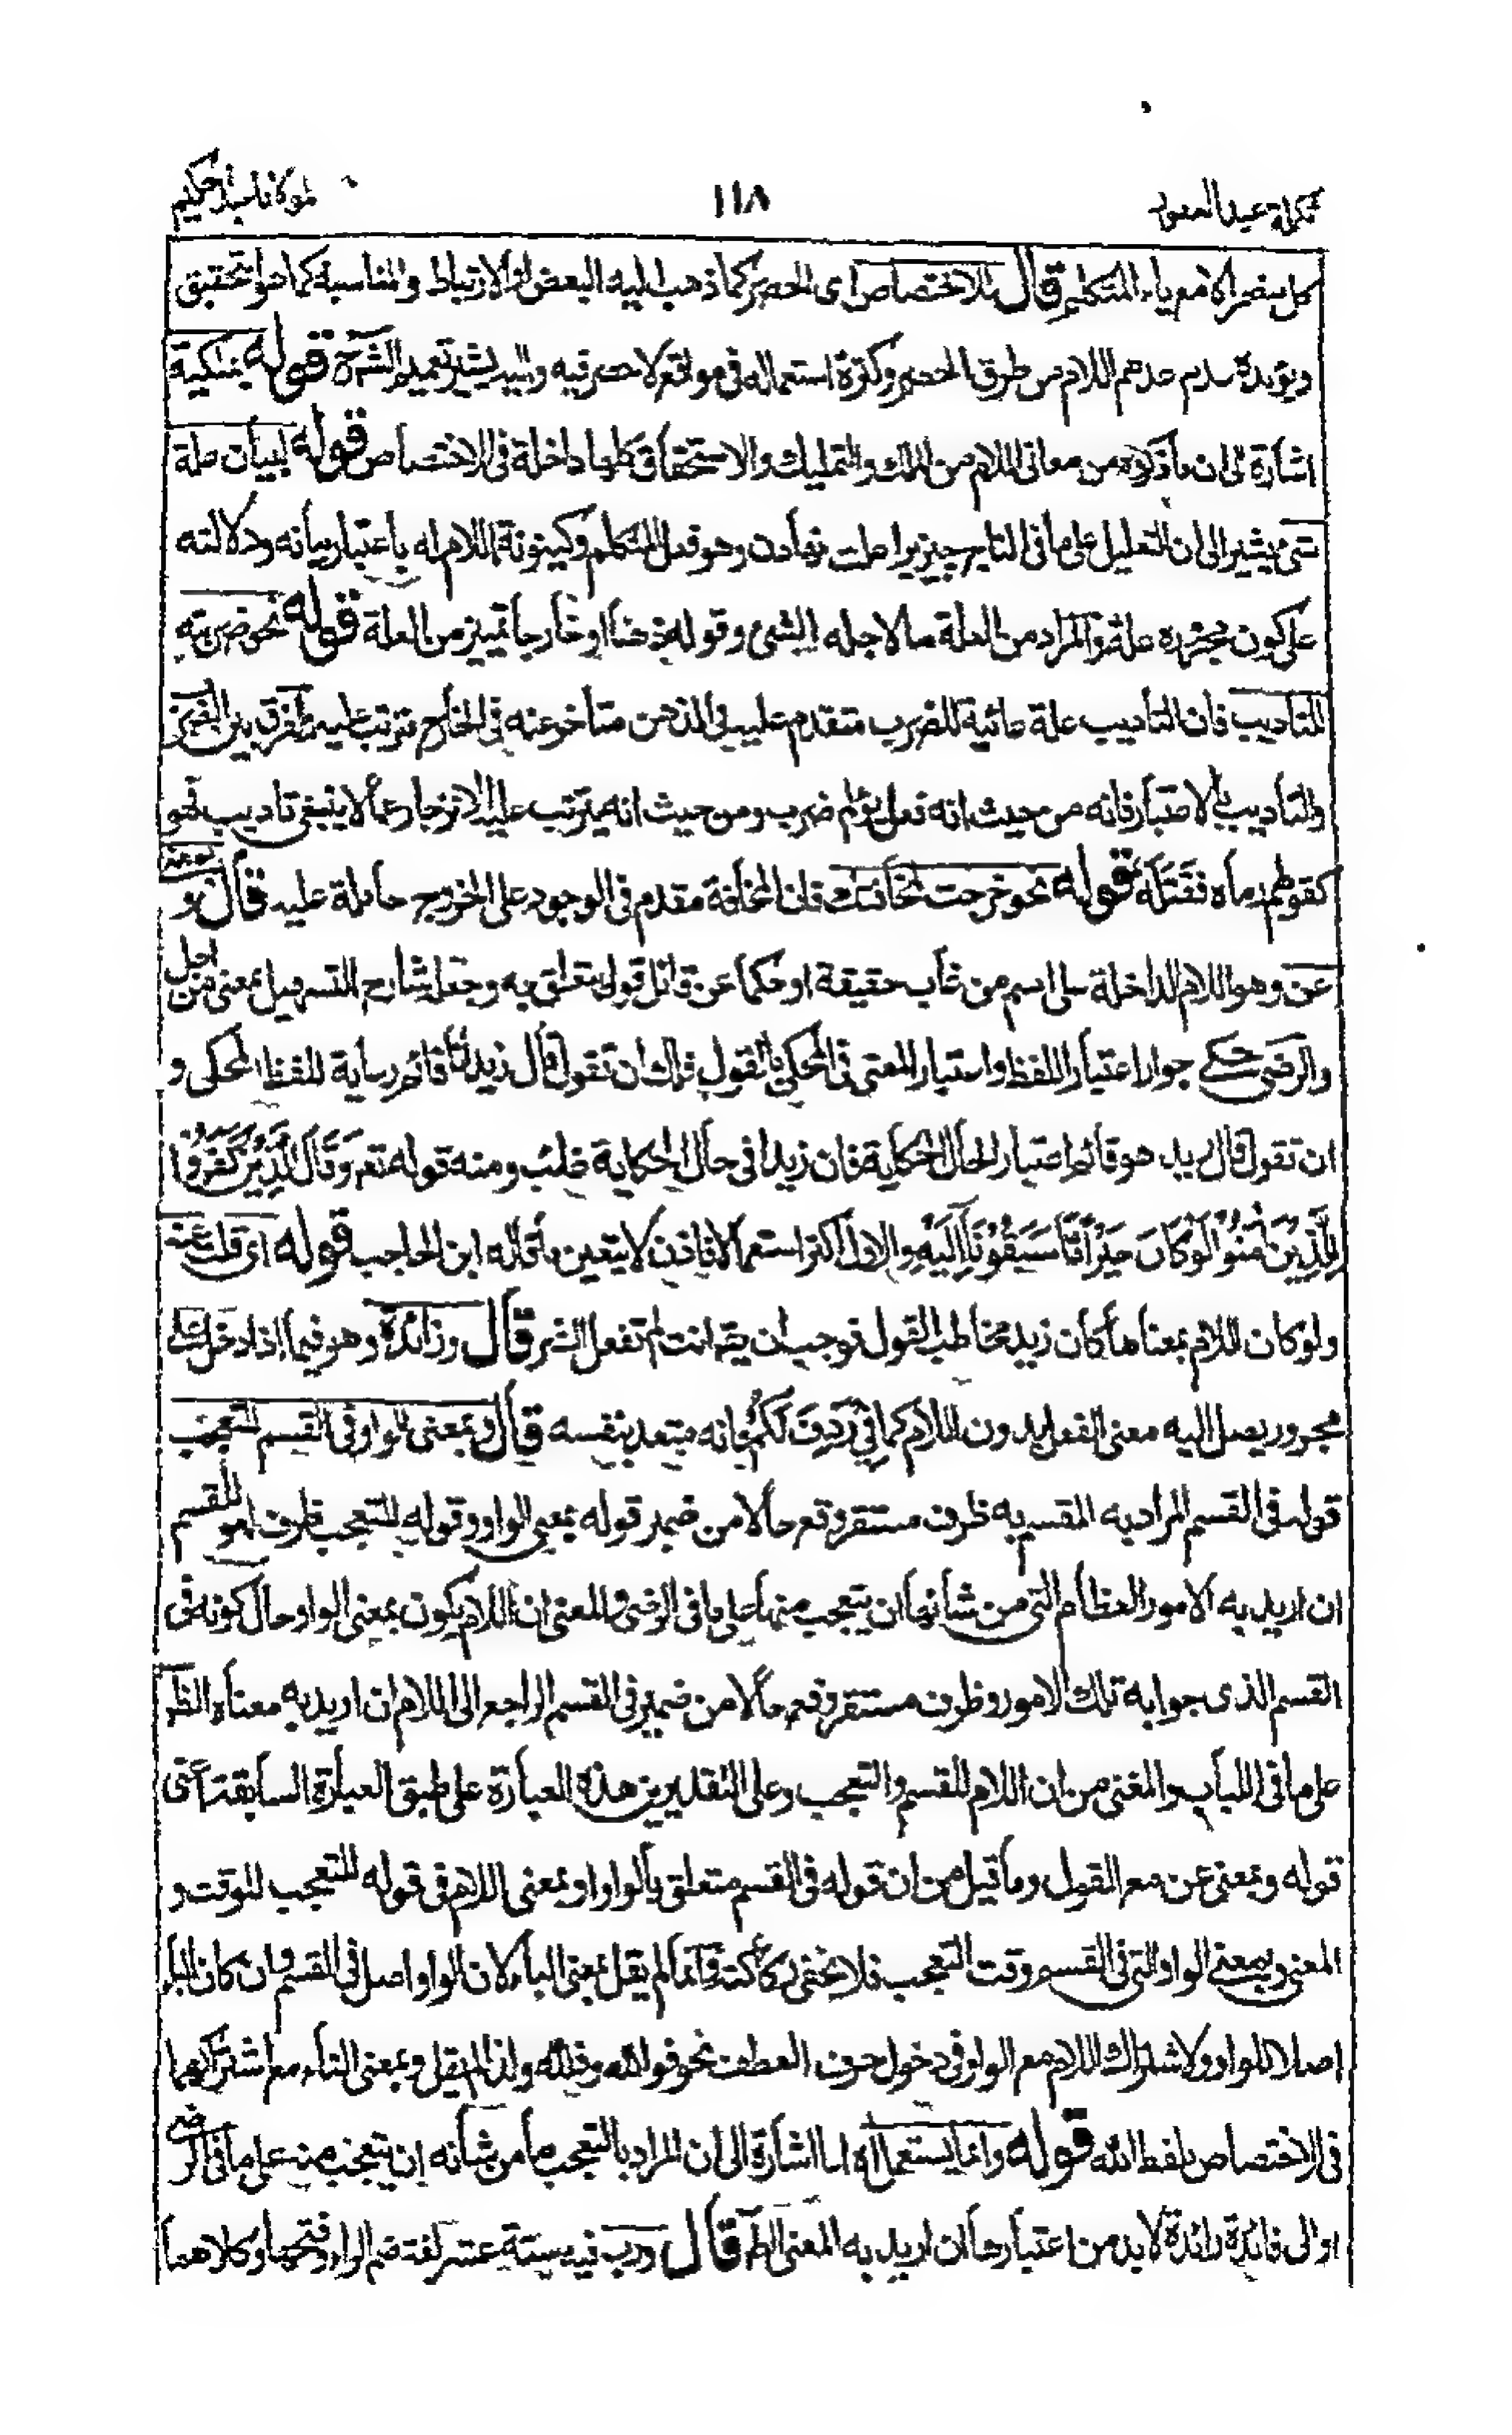 تكملة عبد الغفور
١١٨
لمولانا عبد الحكيم
كل مضمر الا مع ياء المتكلم قال للاختصاص اى الحصر كما ذهب اليه البعض او الارتباط والمناسبة كما هو التحقيق
ويؤيده عدم عدهم اللام من طرق الحصر وكثرة استعماله فى مواقع لا حصر فيه واليه يشير تعميم الشرح قوله بملكية
اشارة الى ان ما ذكروه من معانى اللام من الملك والتمليك والاستحقاق كلها داخلة فى الاختصاص قوله لبيان علة
شئ يشير الى ان التعليل على ما فى التاج وهو فعل المتكلم وكينونة اللام له باعتبار بيانه ودلالته
على كون مجروره علة والمراد من العلة ما لاجله الشئ وقوله ذهنا او خارجا تمييز من العلة قوله نحو ضربته
للتاديب فان التأديب علة غائية للضرب متقدم عليه فى الذهن متأخر عنه فى الخارج مترتب عليه والفرق بين الضرب
والتأديب بالاعتبار فانه من حيث انه فعل مؤلم ضرب ومن حيث انه يترتب عليه الانزجار عما لا ينبغى تاديب فهو
كقولهم رماه فقتله قوله نحو خرجت لمخافتك فان المخافة مقدم فى الوجود على الخروج حاملة عليه قال وبمعنى
عن وهو اللام الداخلة على اسم من غاب حقيقة او حكما عن قائل قول متعلق به وجعل شارح التسهيل بمعنى من اجل
والرضى حكى جواز اعتبار اللفظ واعتبار المعنى فى المحكى بالقول فلك ان تقول قال زيد انا قائم رعاية للفظ المحكى و
ان تقول قال زيد هو قائم اعتبار الحال الحكاية فان زيدا فى حال الحكاية غائب ومنه قوله تعم وَقَالَ الَّذِيْنَ كَفَرُوْا
لِلَّذِيْنَ اٰمَنُوْا لَوْ كَانَ خَيْرًا مَّا سَبَقُوْنَآ اِلَيْهِ والاول اكثر استعمالا فاذن لا يتعين ما قاله ابن الحاجب قوله اى قلت عنه
ولو كان اللام بمعناها كان زيد مخاطب القول فوجب ان يقم انت لم تفعل الشر قال وزائدة وهو فيما اذا دخل على
مجرور يصل اليه معنى الفعل بدون اللام كما فى رَدِفَ لَكُمْ فانه متعد بنفسه قال وبمعنى الواو فى القسم للتعجب
قوله فى القسم المراد به المقسم به ظرف مستقر وقع حالا من ضمير قوله بمعنى الواو وقوله للتعجب ظرف لغو للقسم
ان اريد به الامور العظام التى من شأنها ان يتعجب منها على ما فى الرضى والمعنى ان اللام يكون بمعنى الواو حال كونه فى
القسم الذى جوابه تلك الامور وظرف مستقر وقع حالا من ضمير فى القسم الراجع الى اللام ان اريد به معناه الظ
على ما فى اللباب والمغنى من ان اللام للقسم والتعجب وعلى التقديرين هذه العبارة على طبق العبارة السابقة اعنى
قوله وبمعنى عن مع القول وما قيل من ان قوله فى القسم متعلق بالواو او بمعنى اللام فى قوله للتعجب للوقت و
المعنى وبمعنى الواو التى فى القسم وقت التعجب فلا يخفى ركاكته وانما لم يقل بمعنى الباء لان الواو اصل فى القسم وان كان الباء
اصلا للواو ولاشتراك اللام مع الواو فى دخول حرف العطف نحو فوالله وفلله ولذا لم يقل وبمعنى التاء مع اشتراكهما
فى الاختصاص بلفظ الله قوله وانما يستعمل اه اما اشارة الى ان المراد بالتعجب ما من شأنه ان يتعجب منه على ما فى الرضى
او الى فائدة زائدة لابد من اعتبارها ان اريد به المعنى الظ قال ورب فيه ستة عشر لغة ضم الراء وفتحها وكلاهما